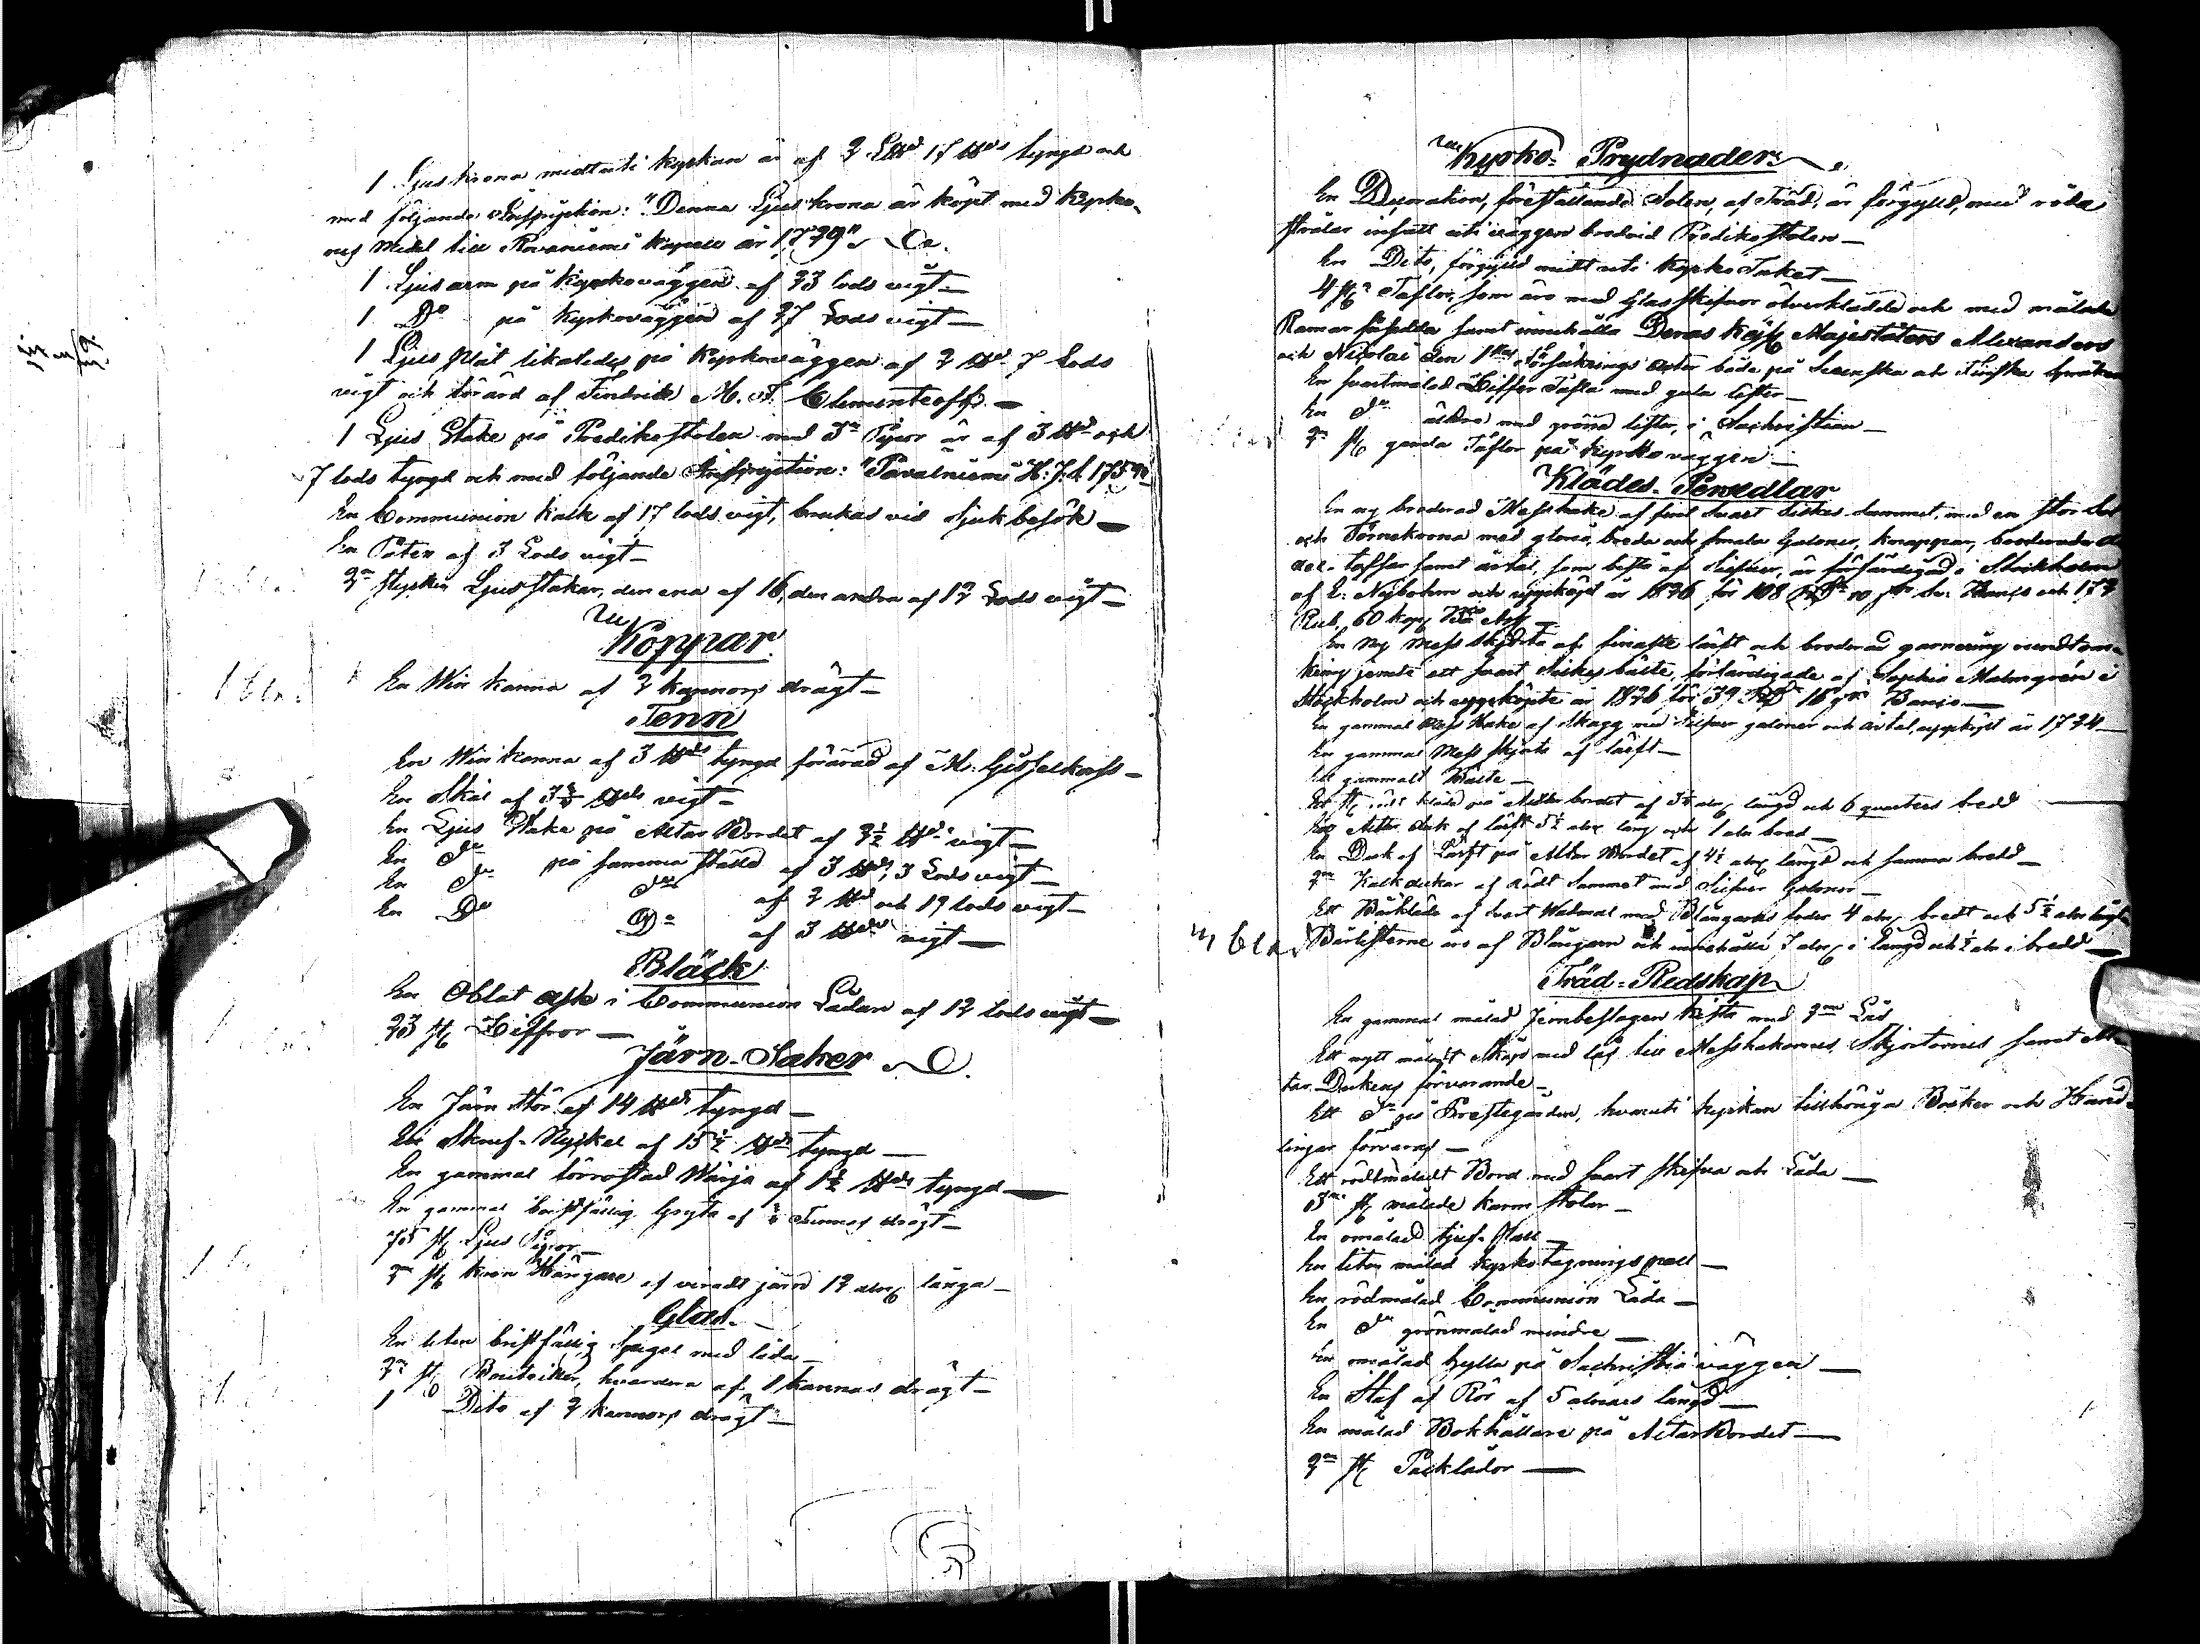 1 Ljus krona midt uti kyrkan är af 2 L℔d 17 ℔ds tyngd och
med följande Inscription: "Denna Ljus krona är köpt med Kyrko-
nes Medel till Rovaniemi Kapell år 1779"
1 Ljus arm på Kyrkoväggen af 23 lods vigt —
1 Do på Kyrkoväggen af 27 Lods vigt —
1 Ljus plåt likaledes på Kyrkoväggen af 2 ℔d 7 Lods
vigt och förärd af Fendrick M. F. Clementeoff. —
1 Ljus Stake på Predikstolen med 3ne Pipor är af 3 ℔d och
7 lods tyngd och med följande Inscription: "Pavalniemi H. J. d. 1759"
En Communion Kalk af 17 lods vigt, brukas vid Sjuk besök —
En Paten af 3 Lods vigt —
2ne stycken Ljusstakar, den ena af 16, den andra af 12 Lods vigt —
Koppar
En Win kanna af 2 kannors drägt —
Tenn
En Win kanna af 3 ℔ds tyngd förärad af M. Gisselkorss —
En Skål af 3 ℔ds vigt —
En Ljus Stake på Altar Bordet af 2½ ℔ds vigt —
En Do på samma ställe af 3 ℔ds, 3 Lods vigt —
En Do Do af 2 ℔d och 19 lods vigt —
En Do Do af 3 ℔ds vigt —
Bläck
En Oblat ask i Communion Lådan af 12 lods vigt —
23 st Ziffror —
Järn-Saker
En Järn Stör af 14 ℔ds tyngd —
En Skruf-Nyckel af 15½ ℔ds tyngd —
En gammal förrostad Wärja af 1½ ℔ds tyngd —
En gammal bristfällig Gryta af Tunnas drägt —
75 st Ljus Pipor —
2ne st Kron Hängare af vredt järn 12 alnr långa —
Glas.
En liten bristfällig Spegel med låda —
2ne st Bouteiller, hvardera af 1 kannas drägt —
1 Dito af 2 kannors drägt —
Kyrko-Prydnader
En Decoration, föreställande Solen, af Träd, är förgylld, med röda
strålar infatt uti väggen bredvid Predikostolen —
En Dito, förgylld midt uti Kyrko Taket —
4 st Taflor, som äro med Glas skifvor öfverklädde och med målade
Ramar försedda samt innehålla Deras Kejs Majestäters Alexanders
och Nicolai den 1stes Försäkrings Acter både på Svenska och Finska Språken
En svartmålad Ziffer Tafla med gula lister —
En Do äldre med gröna lister, i Sachristian —
2ne st gamla Taflor på Kyrko väggen —
Klädes-Persedlar
En ny broderad Messhake af fint svart Siskes Sammet, med en stor
och Törnekrona med gloria, breda och smala Galoner, knappar, broderade
tofsar samt årtal, som bestå af Silfver, är förfärdigad i Stockholm
af E. Nyholm och uppköpt år 1826 för 108 RD Banco och 172
Rub. 60 kop. Bco Ass —
En Ny Mess Skjorta af finaste lärft och broderad garnering rundtom-
kring jemte ett svart Siskes bälte, förfärdigade af Sophia Malmgrén i
Stockholm och uppköpte år 1826 för 39 RD 16 Banco —
En gammal Mess Hake af Skagg med Silfver galoner och årtal, uppköpt år 1724 —
En gammal Mess Skjorta af lärft —
Ett gammalt Bälte —
Ett st kläde på Altar bordet af alnr längd och 6 quarters bredd —
En Altar duk af lärft 5½ alnr lång och 1 aln bred —
En Duk af Lärft på Altar Bordet af 4½ alnr längd och samma bredd —
2ne Kalk dukar af Rödt Sammet med Silfver Galoner —
Ett Bårkläde af svart Wadmal med Blångarns foder 4 alnr bredt och 5½ alnr långt
Bårlisterne äro af Blångarn och innehålla 7 alnr i längd och ½ aln i bredd —
Träd-Redskap
En gammal målad Jernbeslagen Kista med 2ne Lås
Ett nytt måladt Skåp med lås till Messhakarnes, Skjortornes samt Al-
tar Dukens förvarande —
Ett Do på Prestegården, hvaruti Kyrkan tillhöriga Böcker och Hand-
lingar förvaras —
Ett rödmåladt Bord med svart skifva och Låda —
3ne st målade karm stolar —
En omålad tjuf-Pall —
En liten målad kyrkotagnings pall —
En rödmålad Communion Låda —
En Do grönmålad mindre —
En omålad hylla på Sachristiæ väggen —
En Staf af Rör af 5 alnars längd —
En målad Bokhållare på Altar Bordet —
2ne st Packlådor —